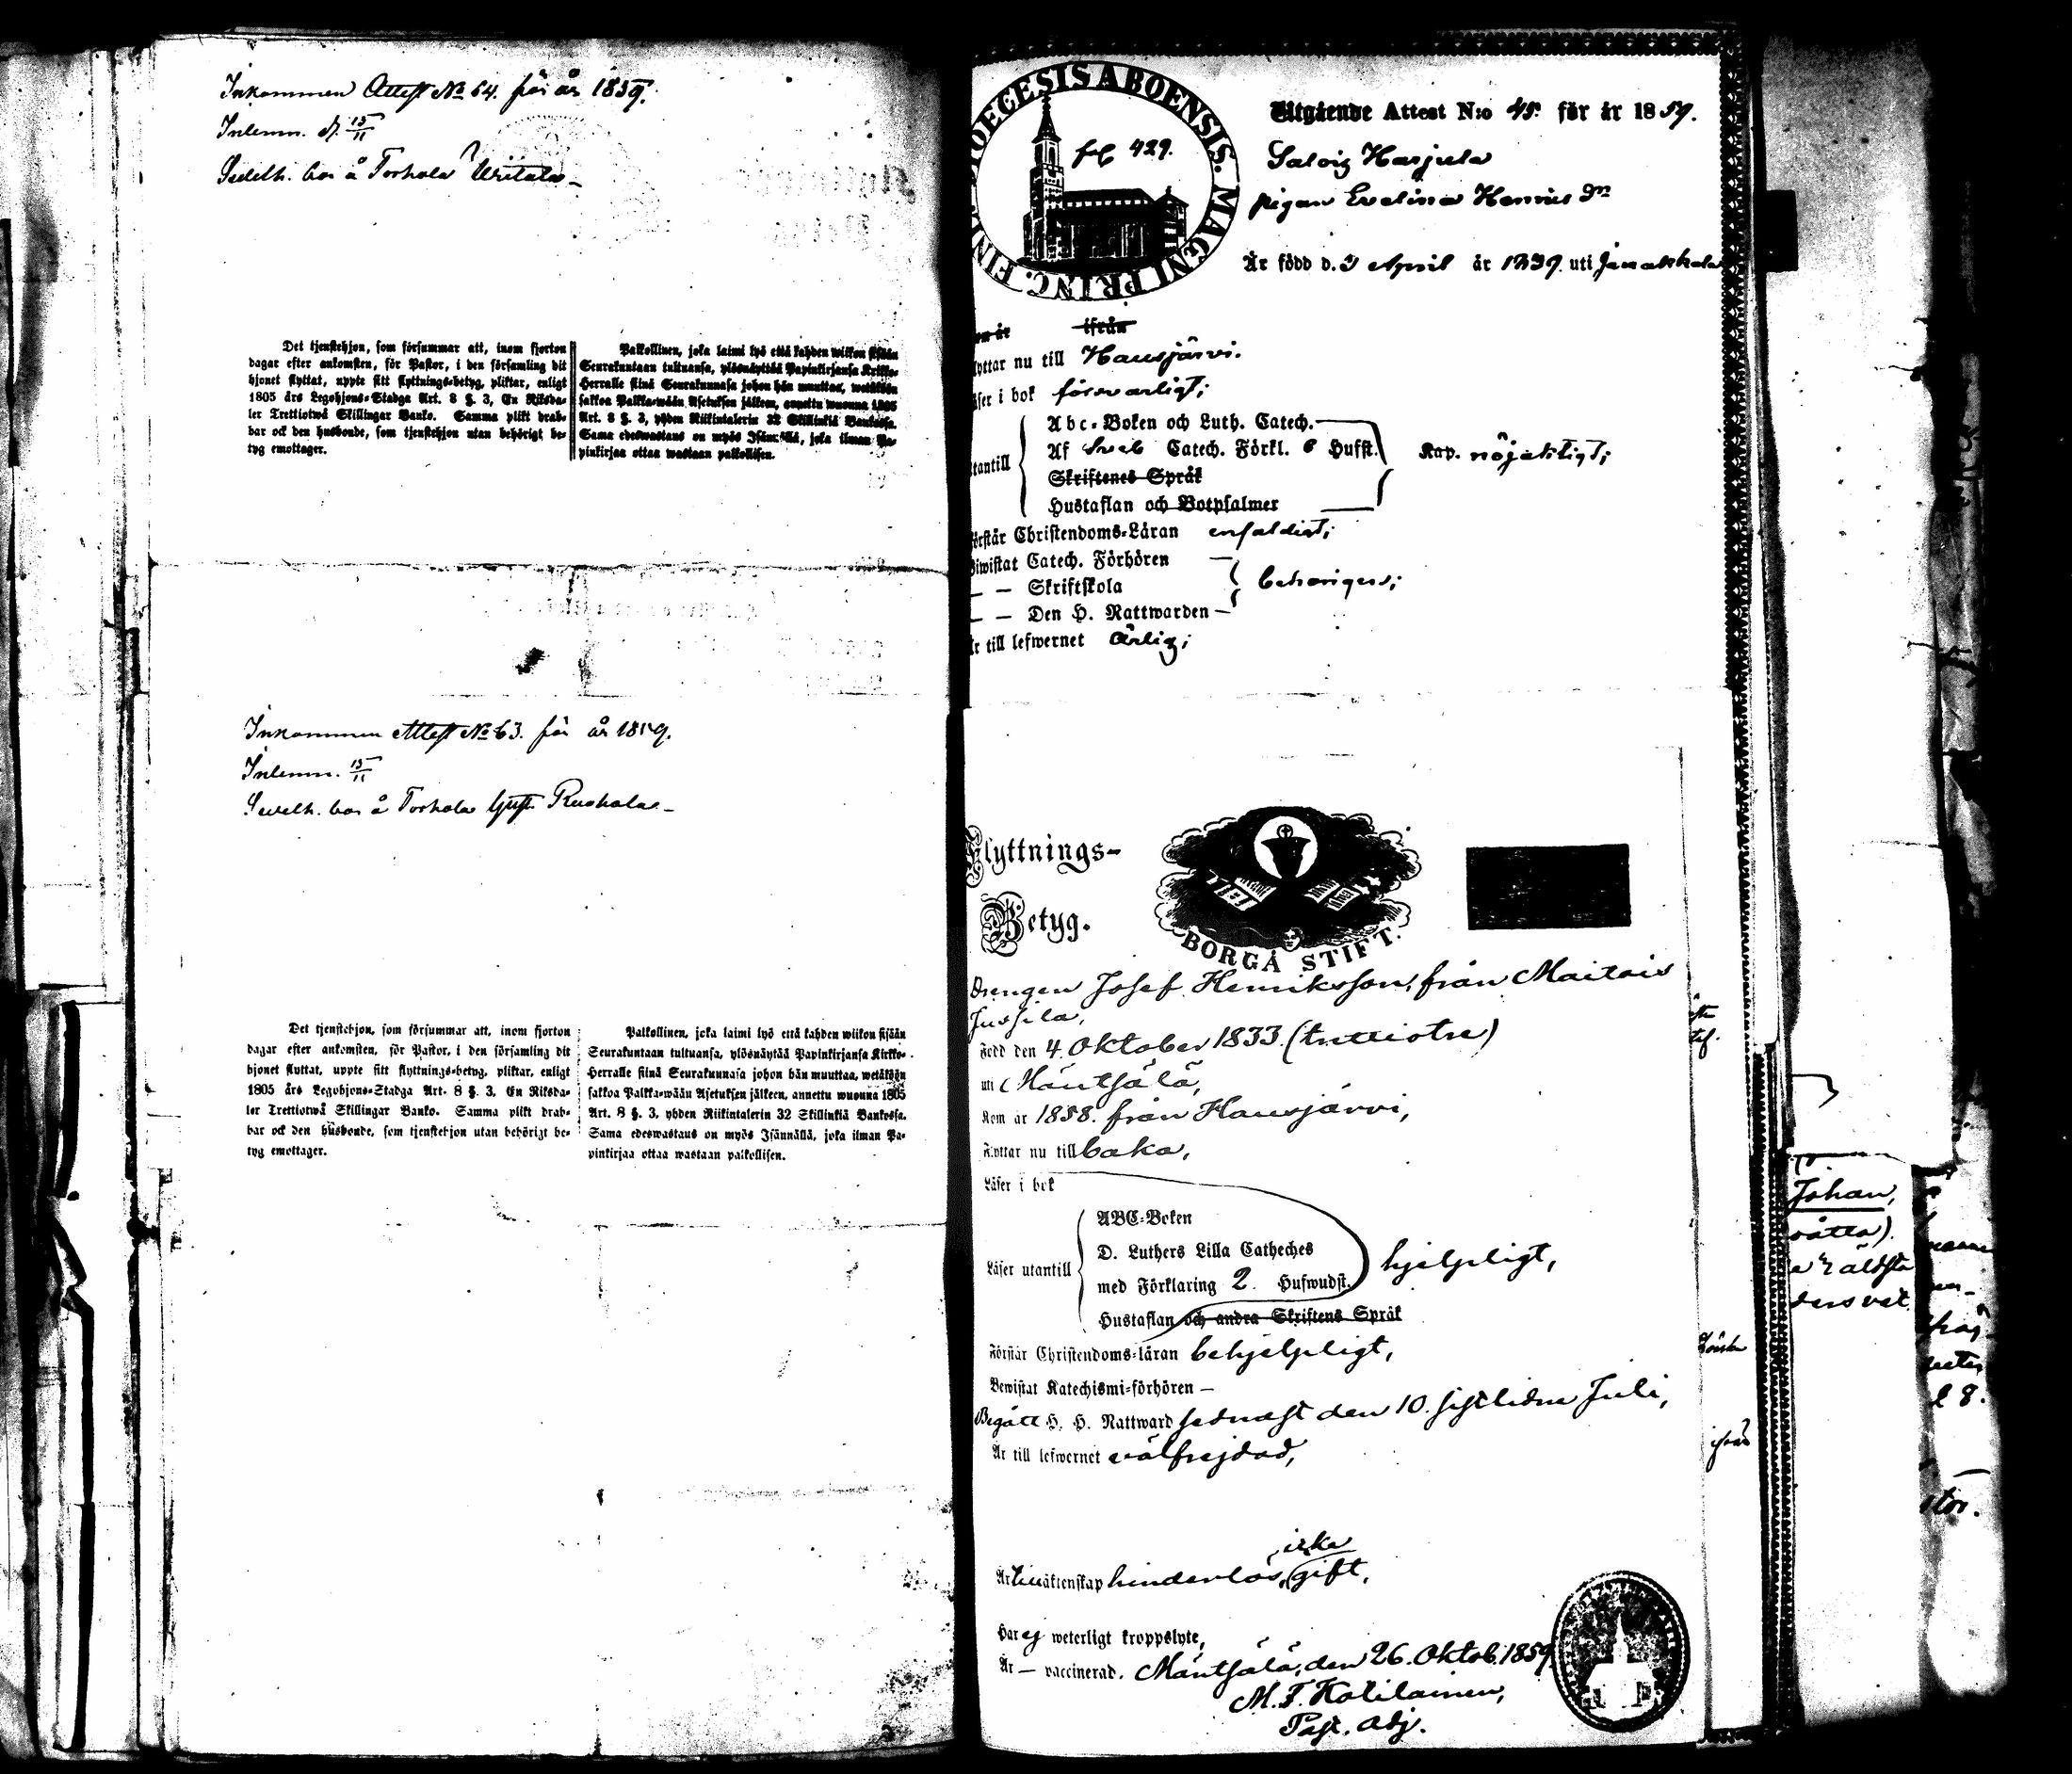 Inkommen Attest No 64. för år 1859.
Inlemn. d. 15/11
Swelh. hos å Torhola Uritalo
Det tjenstehjon, som försummar att, inom fjorton
dagar efter ankomsten, för Pastor, i den församling dit
hjonet flyttat, uppte sitt flyttnings-betyg, pliktar, enligt
1805 års Legohjons-Stadga Art. 8 §. 3, En Riksda-
ler Trettiotwå Skillingar Banko. Samma plikt drab-
bar ock den husbonde, som tjenstehjon utan behörigt be-
tyg emottager.
Palkollinen, joka laimi lyö että kahden wiikon sisään
Seurakuntaan tultuansa, ylösnäyttää Papinkirjansa Kirkko-
Herralle siinä Seurakunnasa johon hän muuttaa, wetäköön
sakkoa Palkka-wään Asetuksen jälkeen, annettu wuonna 1805
Art. 8 §. 3, yhden Riikintalerin 32 Skillinkiä Bankossa.
Sama edeswastaus on myös Isännällä, joka ilman Pa-
pinkirjaa ottaa wastaan palkollisen.
Inkommen Attest No 63. för år 1859.
Inlemn. 15/11
Swelh. hos å Torhola Gust. Ruohola
Det tjenstehjon, som försummar att, inom fjorton
dagar efter ankomsten, för Pastor, i den församling dit
hjonet flyttat, uppte sitt flyttnings-betyg, pliktar, enligt
1805 års Legohjons-Stadga Art. 8 §. 3, En Riksda-
ler Trettiotwå Skillingar Banko. Samma plikt drab-
bar ock den husbonde, som tjenstehjon utan behörigt be-
tyg emottager.
Palkollinen, joka laimi lyö että kahden wiikon sisään
Seurakuntaan tultuansa, ylösnäytää Papinkirjansa Kirkko-
Herralle siinä Seurakunnasa johon hän muuttaa, wetäköön
sakkoa Palkka-wään Asetuksen jälkeen, annettu wuonna 1805
Art. 8 §. 3, yhden Riikintalerin 32 Skillinkiä Bankossa.
Sama edeswastaus on myös Isännällä, joka ilman Pa-
pinkirjaa ottaa wastaan palkollisen.
DIOECESIS ABOENSIS. MAGNI PRINC. FINL.
fol 429.
Utgående Attest N:o 45. för år 1859.
Saloig Harjula
pigan Evelina Henriks dr
Är född d. 3 April år 1839. uti Janakkala
om år ifrån
lyttar nu till Hausjärvi.
äser i bok försvarligt;
tantill
Abc-Boken och Luth. Catech.
Af Sveb Catech. Förkl. 6 Hufst.
Skriftenes Språk
Hustaflan och Botpsalmer
Kap. nöjaktligt;
örstår Christendoms-Läran enfaldigt;
iwistat Catech. Förhören
— — Skriftskola
— — Den H. Nattwarden —
behörigen;
r till lefwernet Ärlig;
Flyttnings-
Betyg.
BORGÅ STIFT.
Drengen Josef Henriksson, från Maitois
Jussila,
Född den 4. Oktober 1833. (trettiotre)
uti Mäntsälä,
Kom år 1858. från Hausjärvi,
Flyttar nu till baka,
Läser i bok
Läser utantill
ABC-Boken
D. Luthers Lilla Catheches
med Förklaring 2. Hufwudst.
Hustaflan och andra Skriftens Språk
hjelpligt,
Förstår Christendoms-läran behjelpligt,
Bewistat Katechismi-förhören —
Begått H. H. Nattward sednast den 10. sistlidne Juli,
Är till lefwernet välfrejdad,
icke
Är till äktenskap hinderlös, gift,
Har ej weterligt kroppslyte,
Är — vaccinerad. Mäntsälä, den 26. Oktob. 1859.
M. F. Kotilainen,
Past. Adj.
Johan,